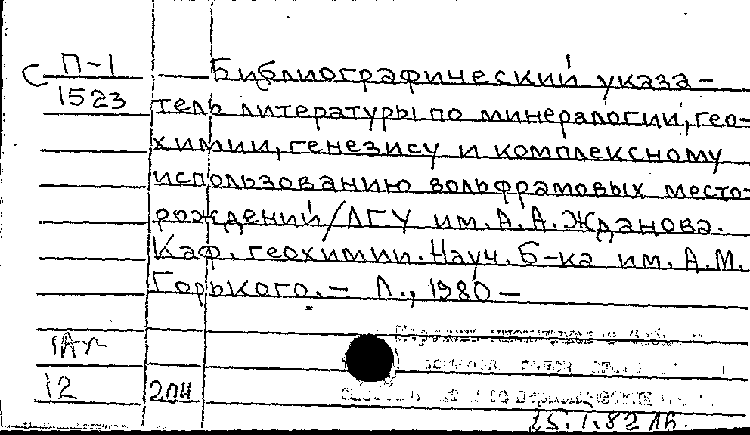 С П-1
1523
Библиографический указа-
тель литературы по минералогии, гео-
химии, генезису и комплексному
использованию вольфрамовых место-
рождений/ЛГУ им. А.А.Жданова.
Каф. геохимии. Науч. б-ка им. А.М.
Горького. – Л., 1980 –
12
204
25.1.82